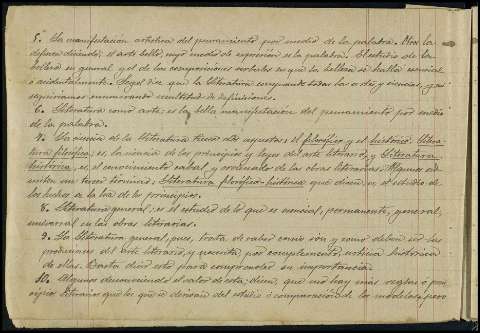 5. La manifestación artística del pensamiento por medio de la palabra. Otros la
definen diciendo; el arte bello, cuyo medio de expresión es la palabra. El estudio de la
belleza en general, y el de las composiciones verbales en que la belleza se halla esencial
ó accidentalmente. Hegel dice que la literatura comprende todas las artes y ciencias, y así
seguiríamos enumerando multitud de definiciones.
6. Literatura como arte: es la bella manifestación del pensamiento por medio
de la palabra.
7. La ciencia de la Literatura tiene dos aspectos: el filosófico y el histórico. Litera-
tura filosófica: es, la ciencia de los principios y leyes del arte literario, y Literatura
histórica, es el conocimiento cabal, y ordenado de las obras literarias. Algunos ad-
miten un tercer término; Literatura filosófico-histórica que dicen es, el estudio de
los hechos a la luz de los principios.
8. Literatura general, es el estudio de lo que es esencial, permanente, general,
universal en las obras literarias.
9. La literatura general, pues, trata de saber como són y como deben ser las
producciones del arte literario, y necesita por complemento, noticia histórica
de ellas. Basta decir esto para comprender su importancia.
10. Algunos desconociendo el valor de esta; dicen, que no hay más reglas ó prin-
cipios literarios que los que se derivan del estudio ó comparación de los modelos; pero